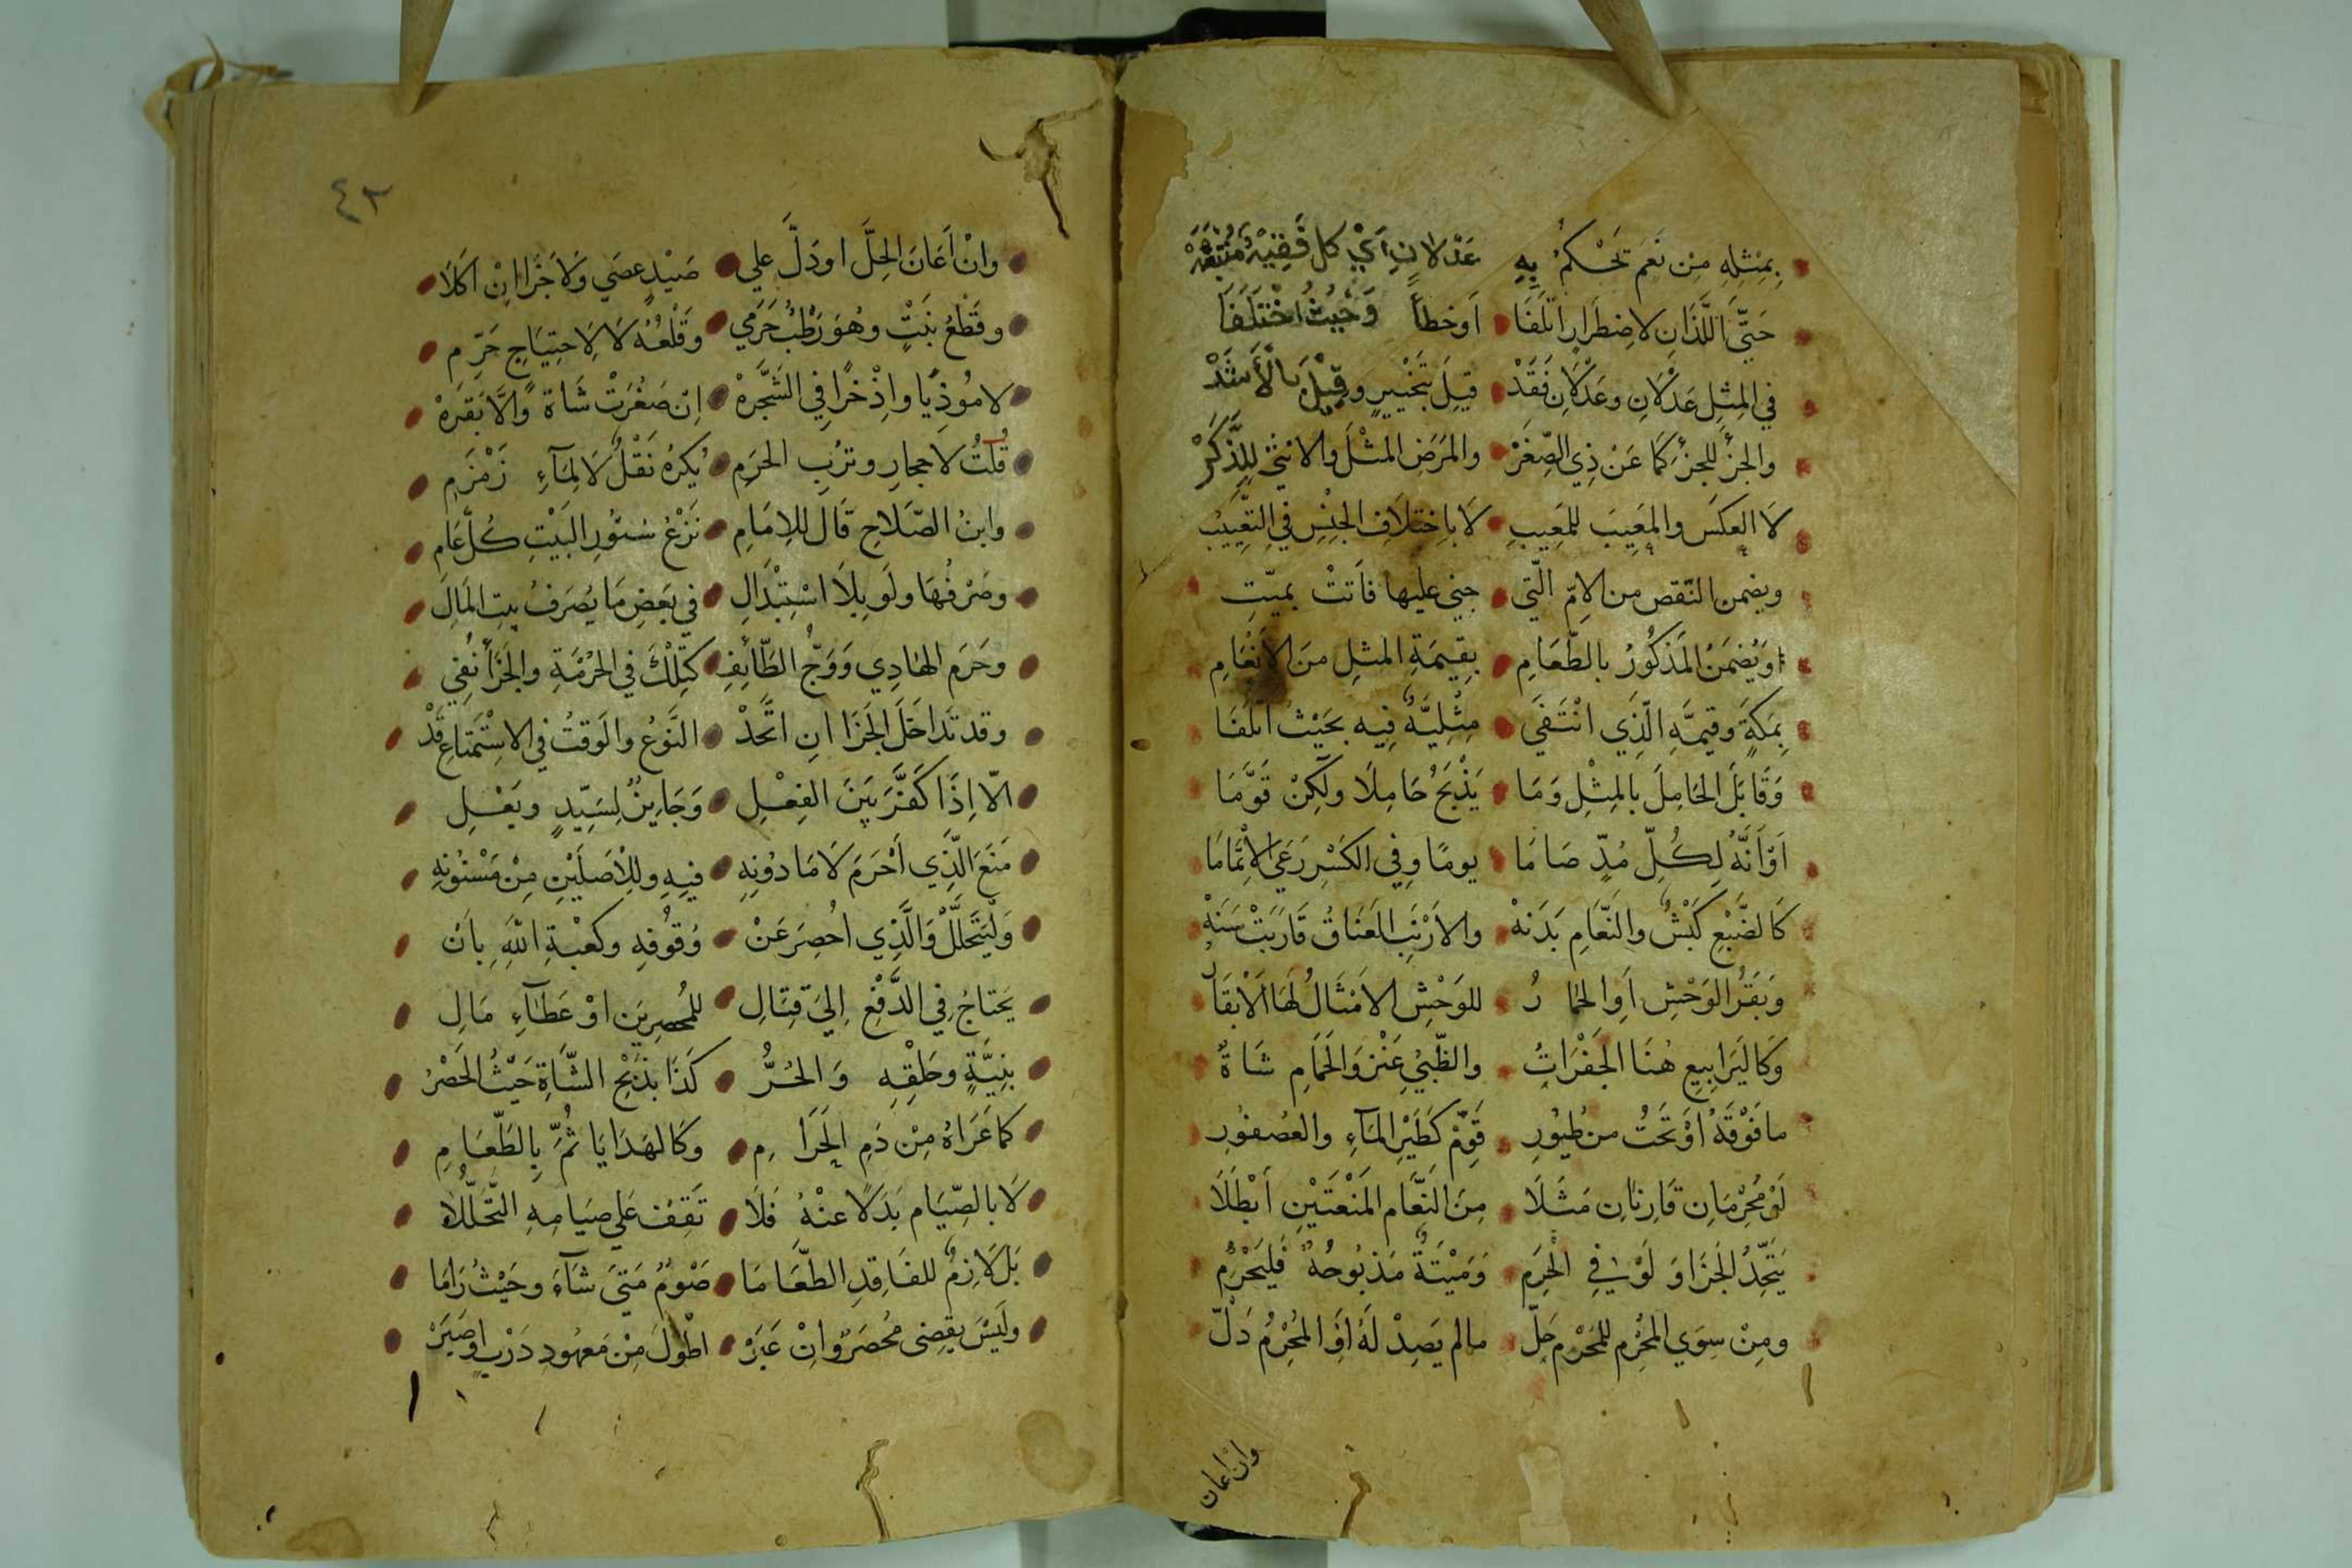 بِمِثْلِهِ مِنْ نَعَمٍ تَحْكُمُ بِهِ عَدْلَانِ أَيْ كل فَقِيْهٍ مُنْتَبِهْ
حَتَّى اللَّذَانِ لاضطِرَارٍ اتلَفَا اَوخطأً وَحَيْثُ اخْتَلَفَا
في المِثِلِ عَدْلَانِ وعَدْلَانِ فَقَدْ قيلَ بتَخْييرٍ وقِيْلَ بالأَسَدّْ
والجزْءُ للجزْءِ كَمَا عَنْ ذِي الصِّغَرْ والمَرَضِ المثْلَ والانثَى لِلذَّكَرْ
لَا العكسَ والمَعِيبَ للمَعِيبِ لَا باِختِلَافِ الجِنْسِ في التعْييبِ
ويضمن النّقص من الامّ الّتي جنى عليها فَاَتتْ بميّتِ
اوَ يُضمَنُ المَذكُورُ بالطّعَامِ بِقِيمَةِ المثلِ مِنَ الاَنْعَامِ
بِمَكةٍ وقيمَةِ الّذِي انْتَفَي مِثْلِيَّةٌ فِيهِ بحَيْثُ اتْلَفَا
وَقَابَلَ الحَامِلَ بالمِثْلِ وَمَا يَذْبَحُ حَامِلًا ولَكِنْ قَوَّمَا
اَوْ اَنَّهُ لِكُلِّ مُدٍّ صَامَا يومًا وفي الكَسْرِ رَعَي الاِتْمَامَا
كَالضَّبْعِ كَبْشٌ والنّعَامِ بَدَنهْ والاَرْنَبِ العَنَاقُ قَارَبَتْ سَنَهْ
وَبَقَرُ الوَحْشِ اَوِ الحَمَارُ للوَحْشِ الامْثَالُ لَهَا الاَبْقَارُ
وَكَاليَرَابِيعِ هُنَا الجَفْرَاتُ والظّبْيِ عَنْزٌ وَالحَمَامِ شَاةٌ
ما فَوْقَهُ اوْ تَحْتُ من طُيُورِ قَوِّمْ كَطَيْرِ المَآءِ والعُصْفُورِ
لَوْ مُحْرِمَانِ قَارِنَانِ مَثَلَا مِنَ النّعَامِ المَنْعَتَيْنِ اَبْطَلَا
يَتَّحِدُ الجَزَا وَلَوْ في الحَرَمِ وَمَيْتَةٌ مَذْبُوحُهُ فَليَحْرُمِ
ومِنْ سِوَي المحْرِمِ للمُحْرِمِ حَلّ مالم يَصِدْ لَهُ اَوِ المُحْرِمُ دَلّ
وان اعان
٤٣
وانْ اَعَانَ الحِلَّ اودَلَّ علي صَيْدٍ عصَي وَلَا جَزَا انْ اكَلَا
وقَطْعُ نَبْتٍ وهُوَ رَطْبٌ حَرَمي وَقَلْعُهُ لَا لِاحتِيَاجٍ حَرِّمِ
لا مُوذِيًا واِذْخرًا في الشَّجَرَهْ اِنْ صَغُرَتْ شَاةً وَالَّا بَقَرَهْ
قُلتُ لاحجارِ وتُرْبِ الحَرَمِ يُكْرَهُ نَقْلٌ لَا لِمَآءِ زَمْزَمِ
وابنُ الصّلَاحِ قَالَ للاِمَامِ نَزْعُ سُتُورِ البَيْتِ كُلَّ عَامِ
وصَرْفُهَا ولَو بِلَا اسْتِبْدَالِ في بَعَضِ مَا يُصرَفُ بيت المَالِ
وحَرَم الهَادِي وَوَجُّ الطّائِفِ كتِلْكَ في الحُرْمَةِ والجَزَآ نُفِي
وقد تَدَاخَلَ الجَزَا انِ اتَّحَدْ النَّوْعُ والوَقتُ في الاِسْتِمْتَاعِ قَدْ
الّا اِذَا كَفَّرَ بَيْنَ الفِعْلِ وَجَايِزٌ لِسَيّدٍ وبَعْلِ
مَنَعَ الّذِي اَحْرَمَ لَا مَا دُونِهِ فيهِ وللاْصَلَيْنِ مِنْ مَسْنُونِهِ
وَلْيَتَحَلَّلْ وَالَّذِي اُحْصِرَ عَنْ وُقوُفِهِ وكعْبَةِ اللّهِ بِاَنْ
يَحتَاجُ في الدَّفْعِ اِلَي قِتَالِ للمُحصِرِينَ اوْ عَطَآءِ مَالِ
بنِيَّةٍ وحَلْقِهِ وَالحُرُّ كَذَا بذَبْحِ الشَّاةِ حَيْثُ الحَصْرُ
كمَا عَرَاهُ مِنْ دَمِ الحَرَامِ وكَالهَدَايَا ثُمَّ بِالطَّعَامِ
لَا بالصّيَامِ بَدَلًا عنْهُ فَلَا تَقِف عَلي صيَامِهِ التَّحَلُّلَا
بَل لَازمٌ للفَاقِدِ الطّعَامَا صَوْمٌ مَتَى شَآءَ وحَيْثُ رَامَا
ولَيْسَ يقضِى مُحصَرٌ وانْ عَبَرْ اطْولَ مِنْ مَعهُودِ دَرْبٍ اوصَبَرْ